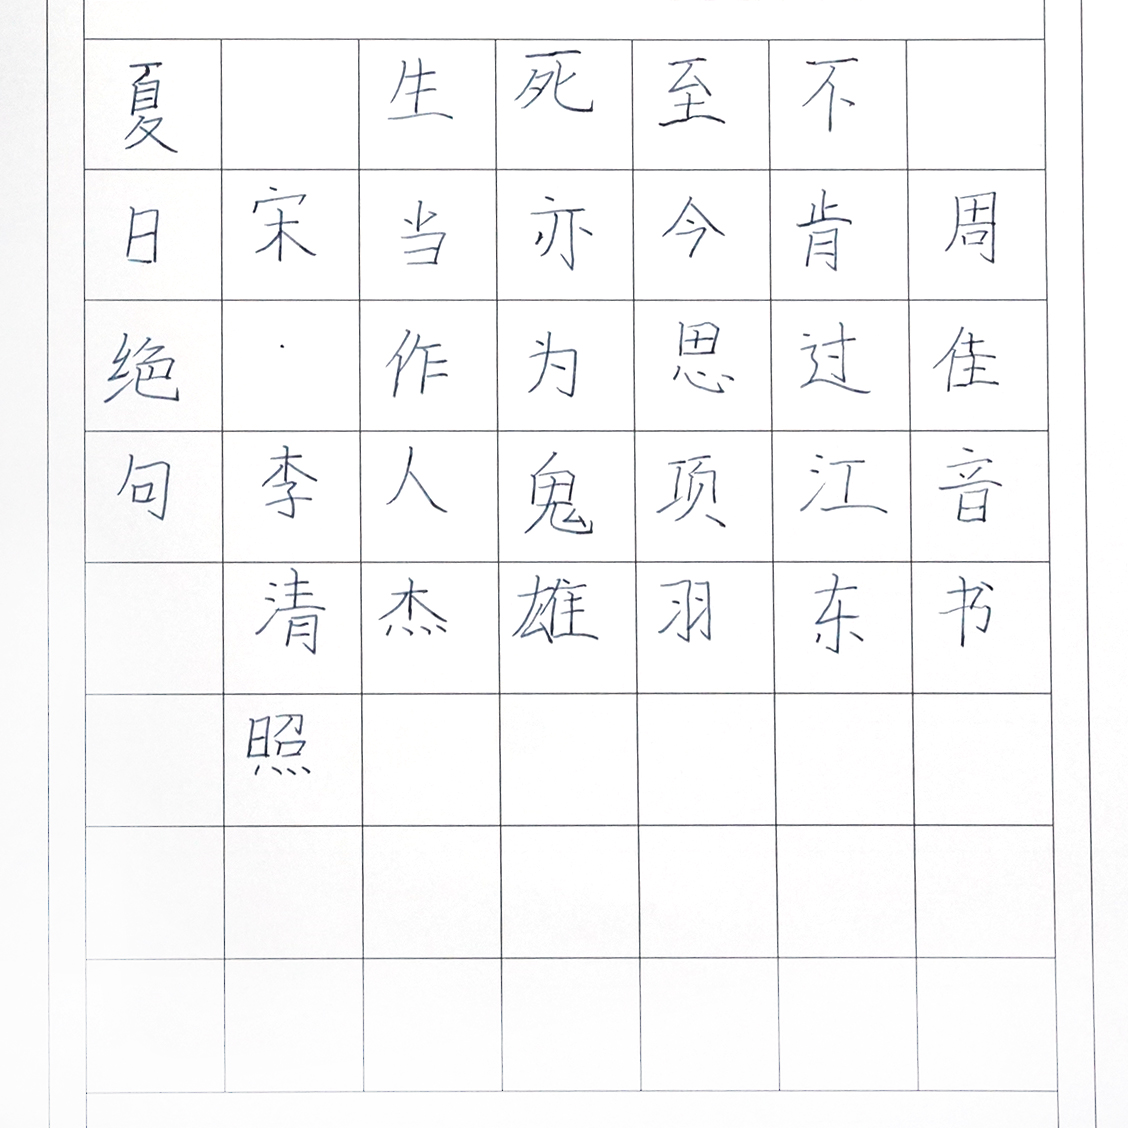 夏日绝句
宋·李清照
生当作人杰
死亦为鬼雄
至今思项羽
不肯过江东
周佳音书